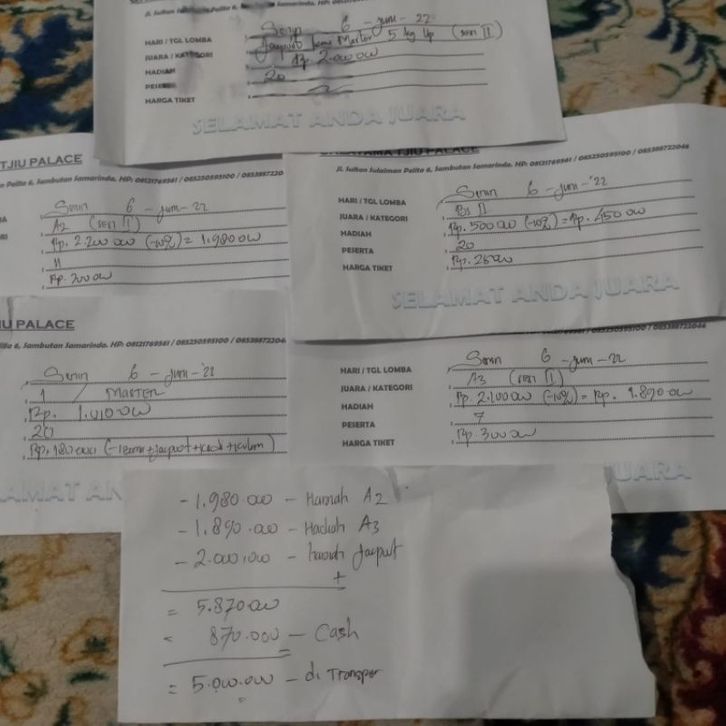 HARI / TGL LOMBA : Senin 6 - Juni - 22
JUARA / KATEGORI : Jacpot Ikan Master 5 kg Up (sesi II)
HADIAH : Rp. 2.000.000
PESERTA : 20
HARGA TIKET :
SELAMAT ANDA JUARA
TJIU PALACE
Pelita 6, Sambutan Samarinda. HP: 08121769561 / 085250595100 /
Senin 6 - Juni - 22
A2 (sesi II)
Rp. 2.200.000 (-10%) = 1.980.000
11
Rp. 300.000
TJIU PALACE
Jl. Sultan Sulaiman Pelita 6, Sambutan Samarinda. HP: 08121769561 / 085250595100 / 085388722046
HARI / TGL LOMBA : Senin 6 - Juni - '22
JUARA / KATEGORI : II
HADIAH : Rp. 500.000 (-10%) = Rp. 450.000
PESERTA : 20
HARGA TIKET : Rp. 25.000
SELAMAT ANDA JUARA
IU PALACE
6, Sambutan Samarinda. HP: 08121769561 / 085250595100 /
Senin 6 - Juni - '22
1 / Master
Rp.
20
SELAMAT AN
HARI / TGL LOMBA : Senin 6 - Juni - 22
JUARA / KATEGORI : A3 (sesi II)
HADIAH : Rp. 2.100.000 (-10%) = Rp. 1.890.000
PESERTA : 7
HARGA TIKET : Rp. 300.000
JUARA
- 1.980.000 - Hadiah A2
- 1.890.000 - Hadiah A3
- 2.000.000 - hadiah Jacpot
+
= 5.870.000
870.000 - Cash
= 5.000.000 - di Transper